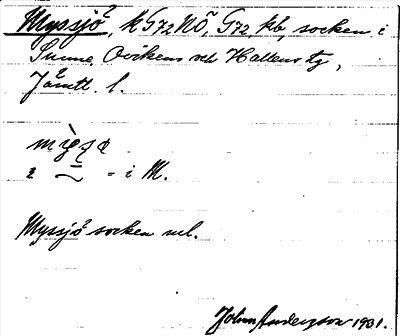 Myssjö, k G72NÖ, G72, kb, socken i
Sunne Ovikens och Hallens tg,
Jämtl. l.
i ~ = i M.
Myssjö socken
Johan Anderson 1931.